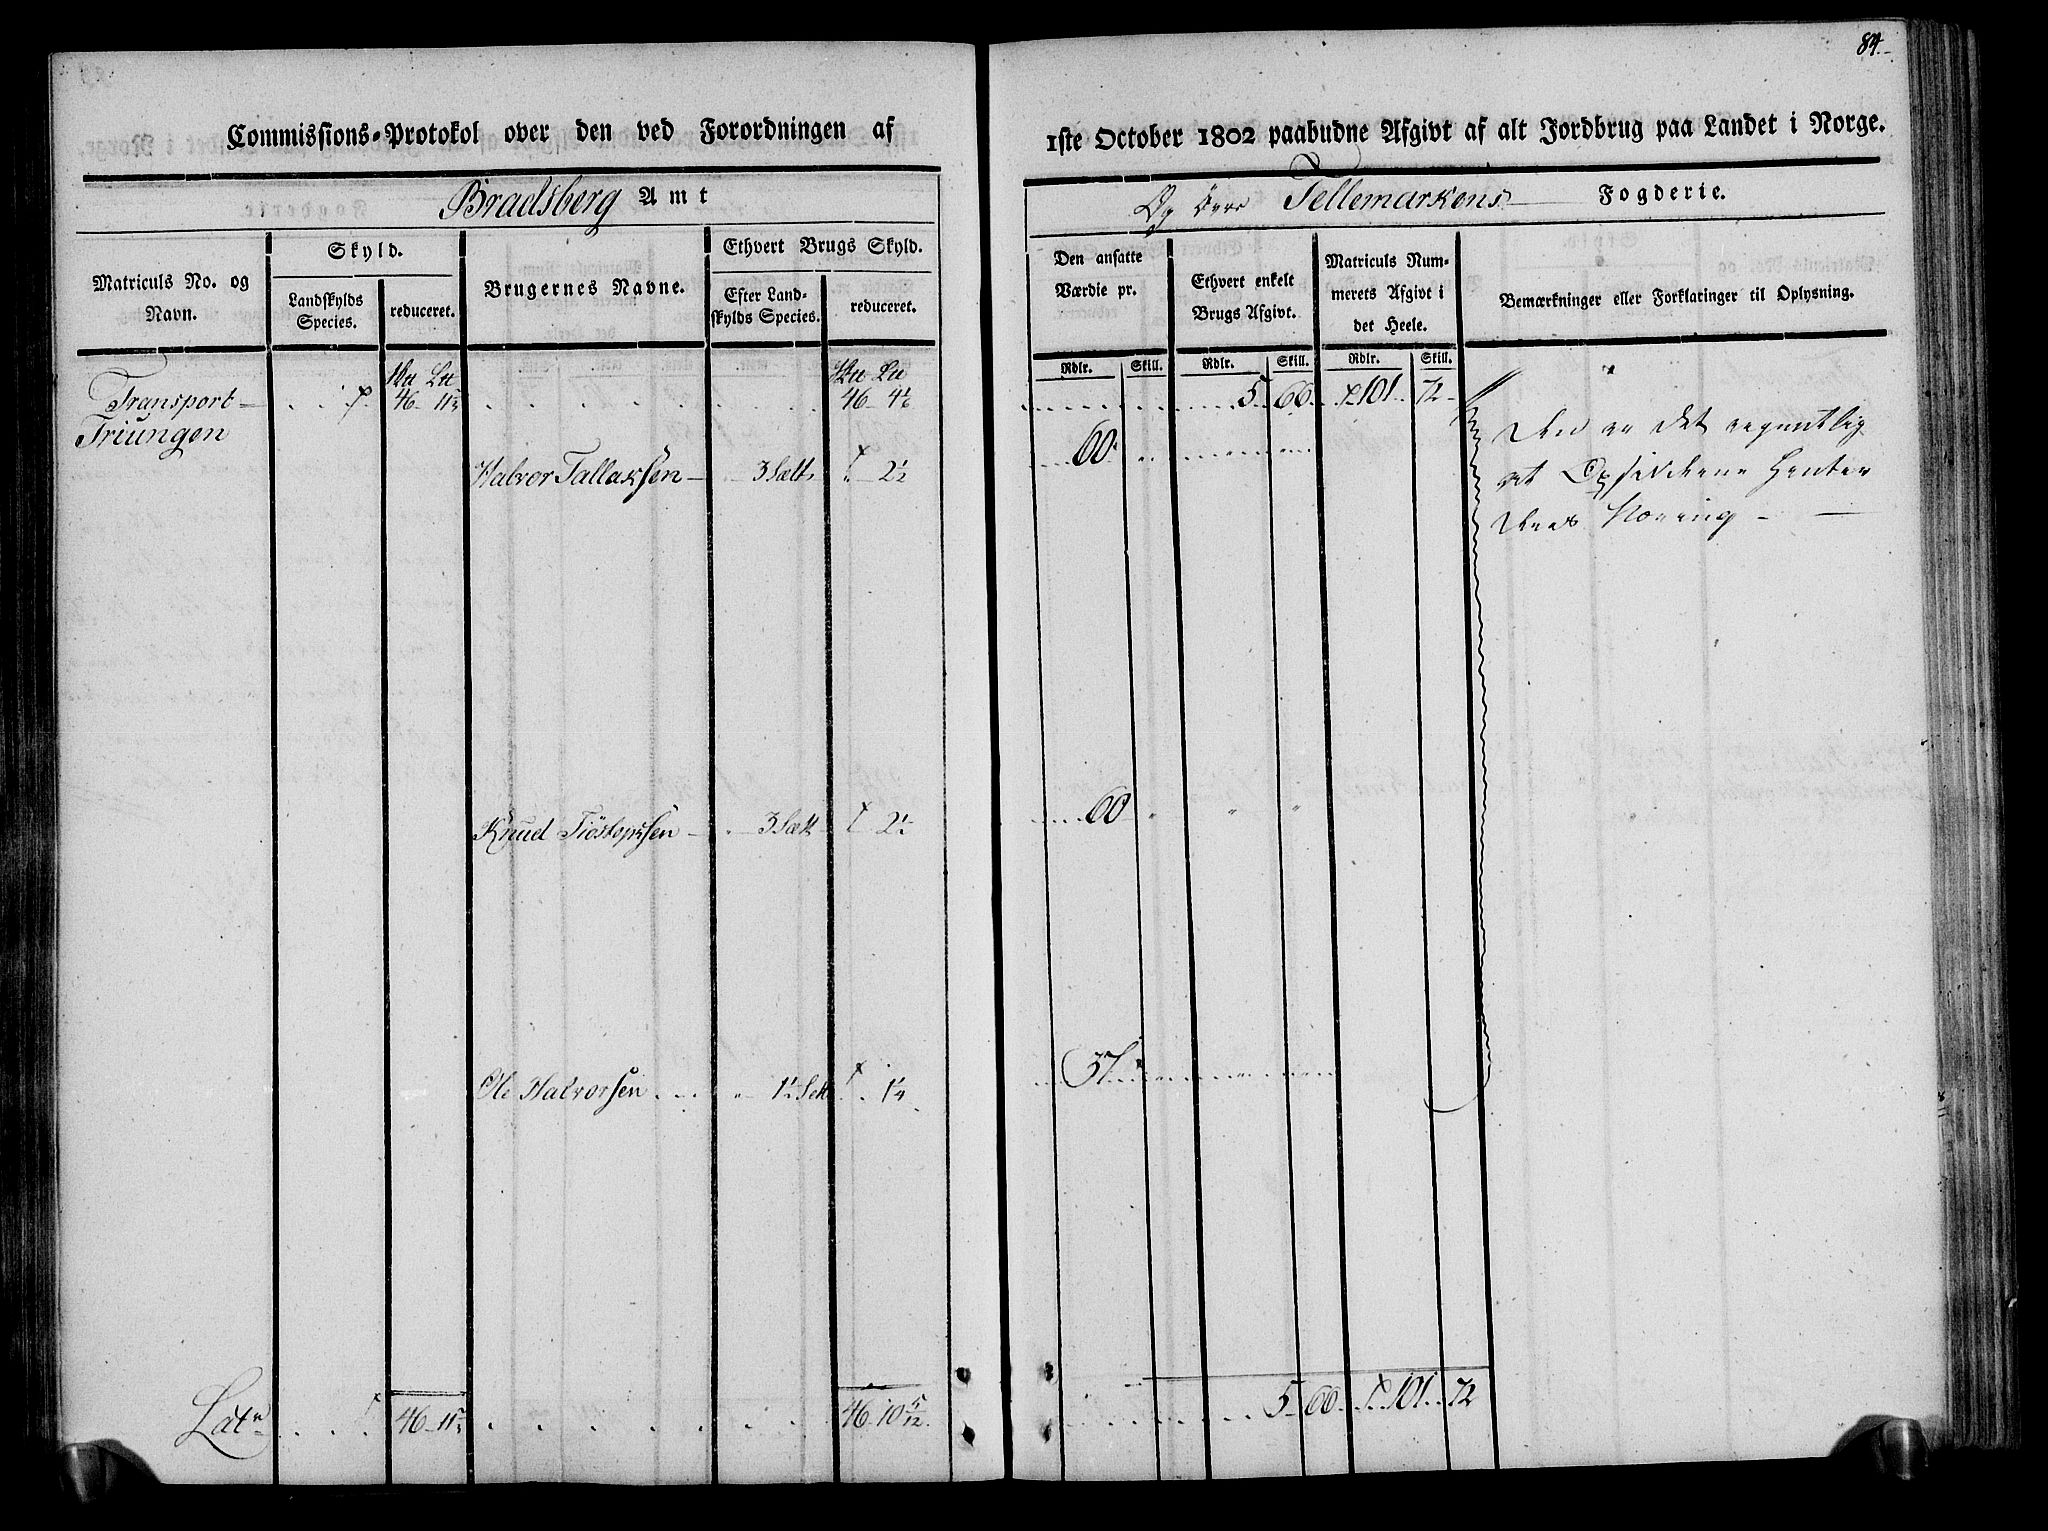 84.
Commissions-Protokol over den ved Forordningen af
1ste October 1802 paabudne Afgivt af alt Jordbrug paa Landet i Norge.
Bradsberg Amt
Og övre Tellemarkens Fogderie.
Matriculs No. og Navn.
Skyld.
Landskylds Species.
reduceret.
Brugernes Navne.
Ethvert Brugs Skyld.
Efter Landskylds Species.
reduceret.
Den ansatte Værdie pr.
Ethvert enkelt Brugs Afgivt.
Matriculs Nummerets Afgivt i det Heele.
Bemærkninger eller Forklaringer til Oplysning.
Rdlr. Skill. Rdlr. Skill. Rdlr. Skill.
Transport 46 46 5 66 101 72
Triungen
Halvor Tallaksen 3 Sett 2½ 60
Den er det egentlig
at Opsidderne Henter
deres Næring
Knud Tiöstopsen 3 Sett 2½ 60
Ole Halvorsen 1½ Sett 1¼ 37
Lat 46 46 10 5/12 5 66 101 72